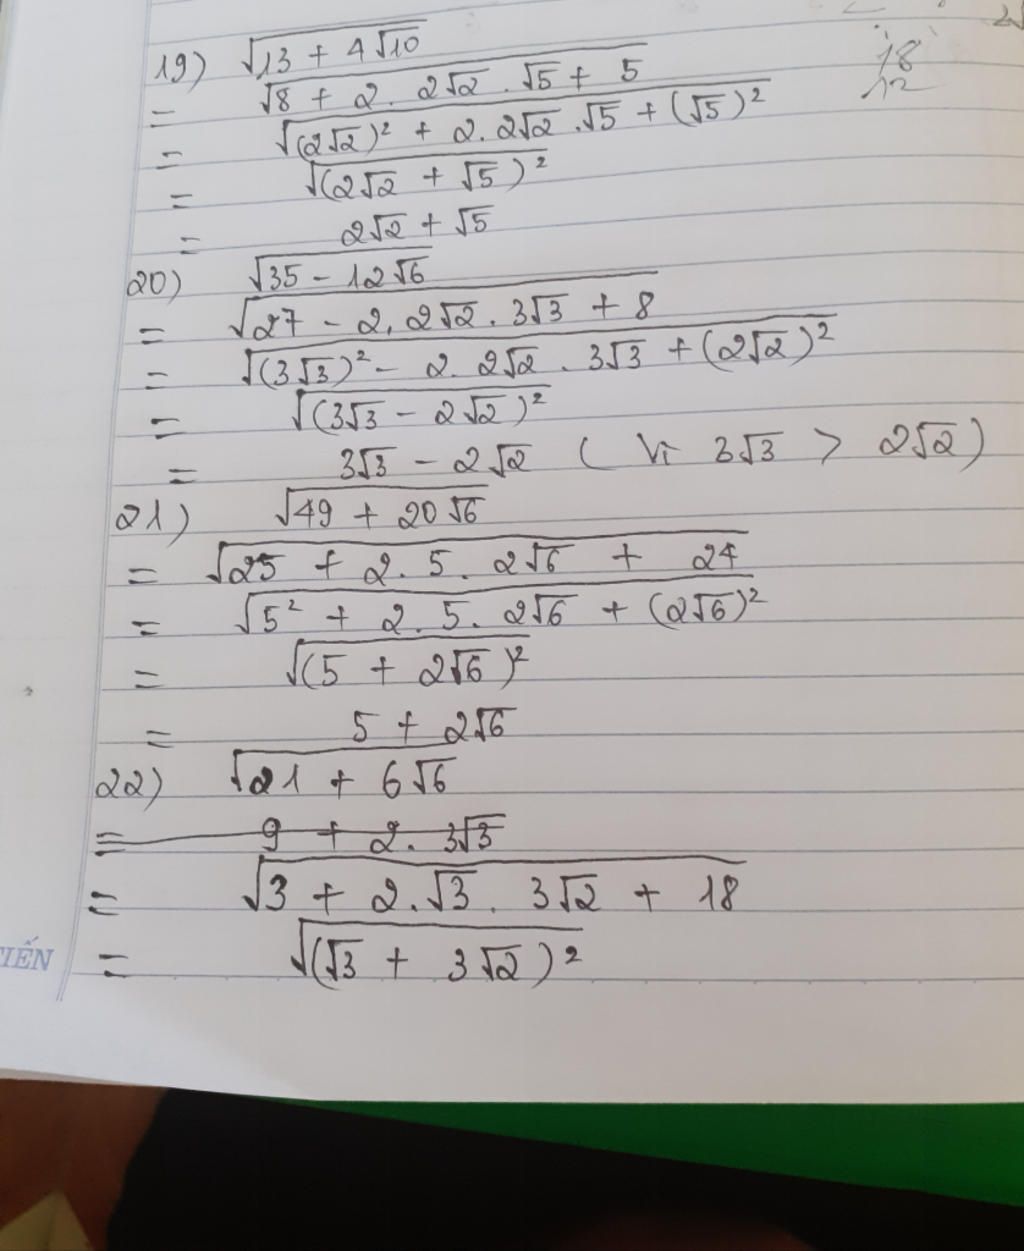 19) √(13 + 4√10)
= √(8 + 2. 2√2 . √5 + 5)
= √((2√2)² + 2. 2√2 .√5 + (√5)²)
= √((2√2 + √5)²)
= 2√2 + √5
20) √(35 - 12√6)
= √(27 - 2. 2√2 . 3√3 + 8)
= √((3√3)² - 2. 2√2 . 3√3 + (2√2)²)
= √((3√3 - 2√2)²)
= 3√3 - 2√2 ( Vì 3√3 > 2√2 )
21) √(49 + 20√6)
= √(25 + 2. 5. 2√6 + 24)
= √(5² + 2. 5. 2√6 + (2√6)²)
= √((5 + 2√6)²)
= 5 + 2√6
22) √(21 + 6√6)
= 9 + 2. 3√3
= √(3 + 2.√3. 3√2 + 18)
= √((√3 + 3√2)²)
18
12
TIẾN